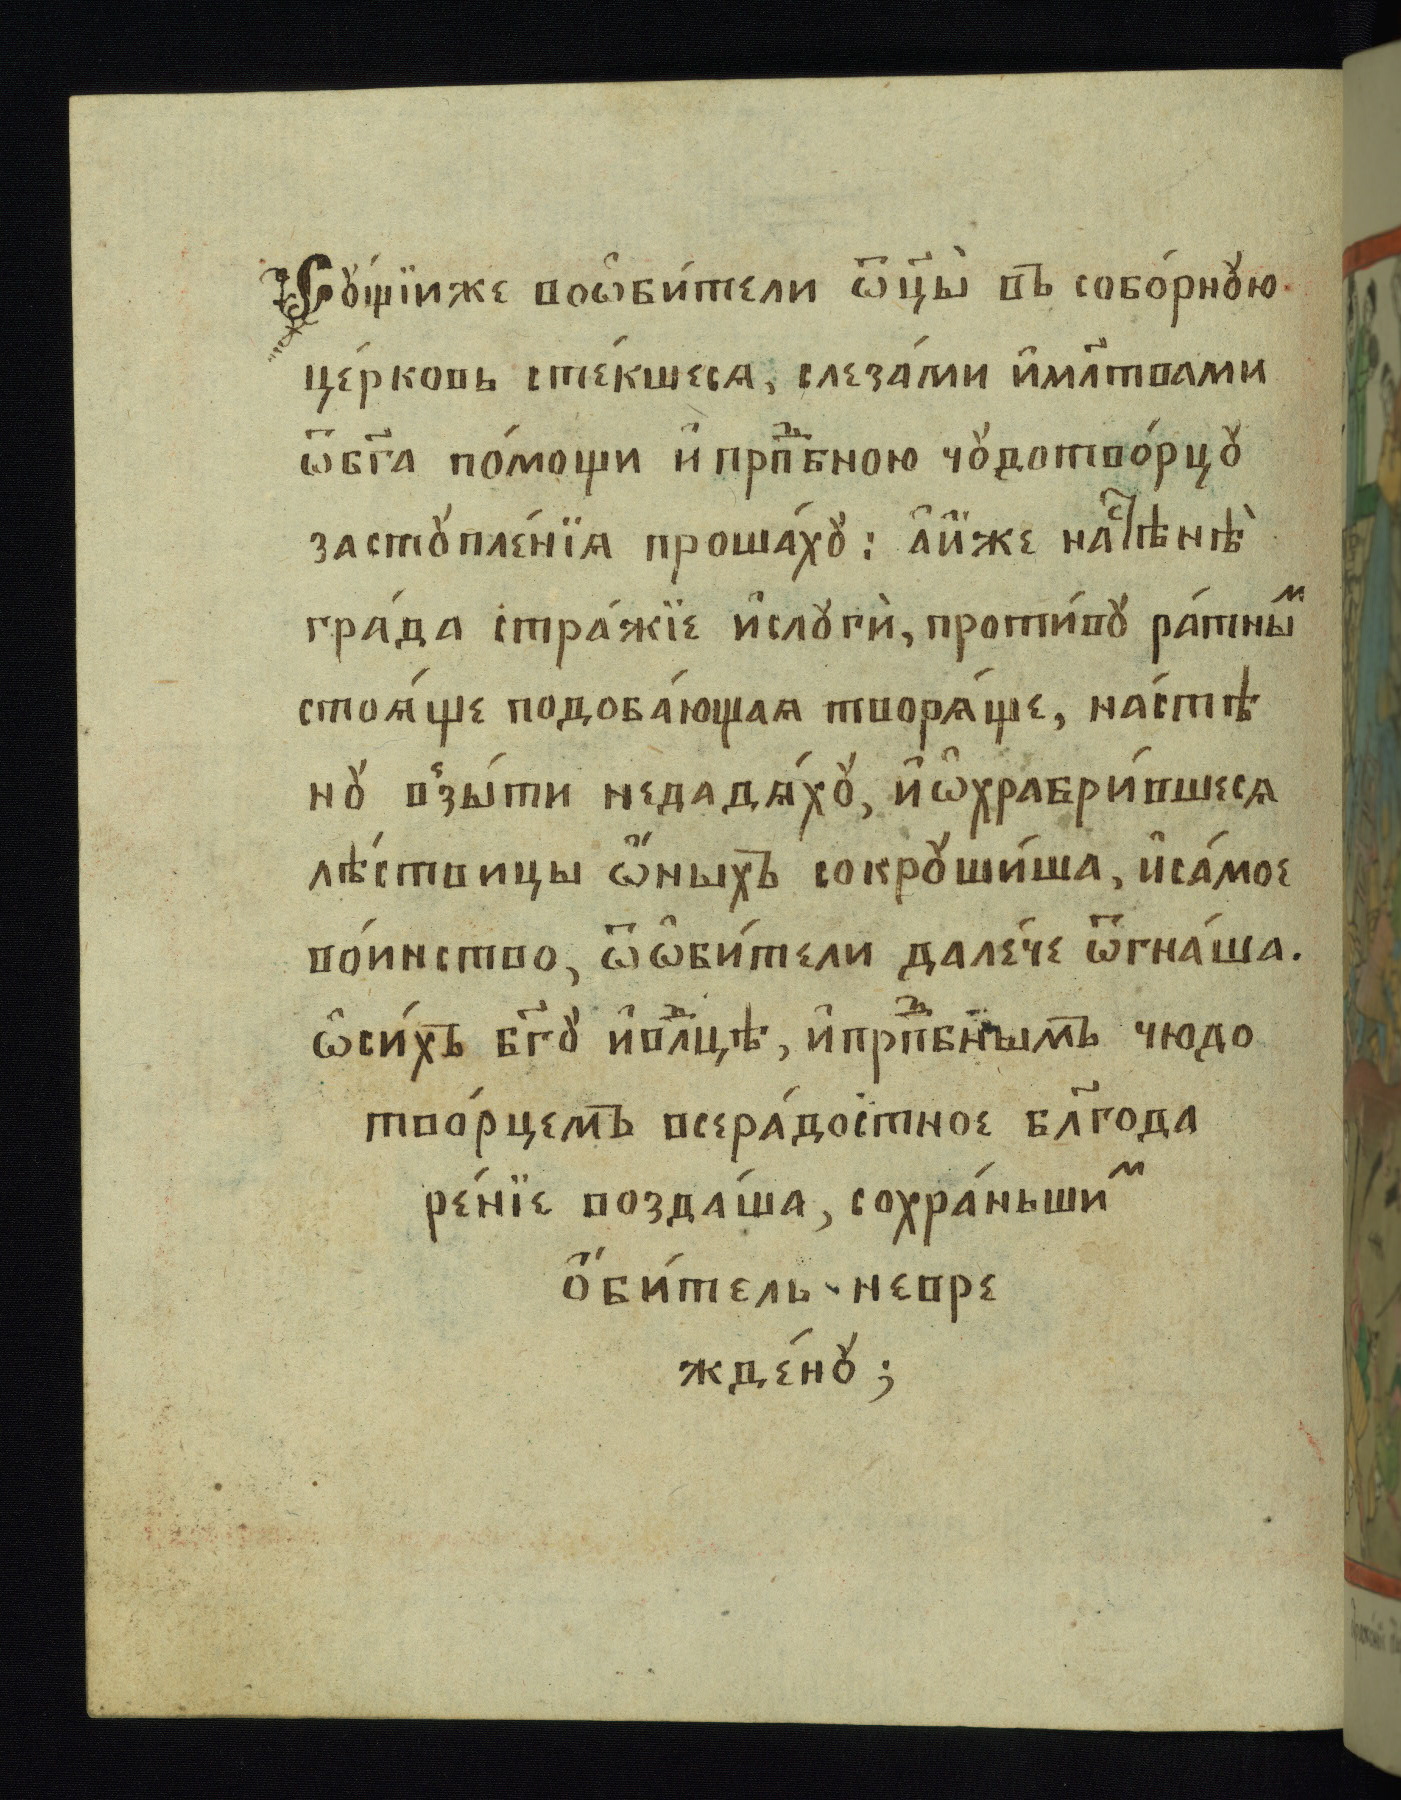 Сꙋ́щїиже воѡ҆би́тели ѿц҃ы̀ въ собо́рнꙋю
це́рковь сте́кшеся, слеза́ми и҆мл҃твами
ѿбг҃а по́мощи и҆прпⷣбною чꙋдотво́рцꙋ
застꙋпле́нїя проша́хꙋ: а҆и҆̈же наⷭ҇тѣнѣ̀
гра́да стра́жїе и҆слꙋгѝ, проти́вꙋ ра́тныⷨ
стоѧ́ще подоба́ющая творѧ́ще, на́стѣ
нꙋ вⸯзы́ти недадѧ́хꙋ, и҆ѡ҆храбри́вшеся
лѣ́ствицы ѡ҆́ныхъ сокрꙋши́ша, и҆са́мое
во́инство, ѿѡ҆би́тели дале́че ѿгна́ша.
ѡ҆си́хъ бг҃ꙋ и҆влⷣцѣ, и҆прпⷣбнымъ чюдо
тво́рцемъ всера́достное бл҃года
ре́нїе возда́ша, сохра́ньшиⷨ
ѻ҆би́тель невре
жде́нꙋ;